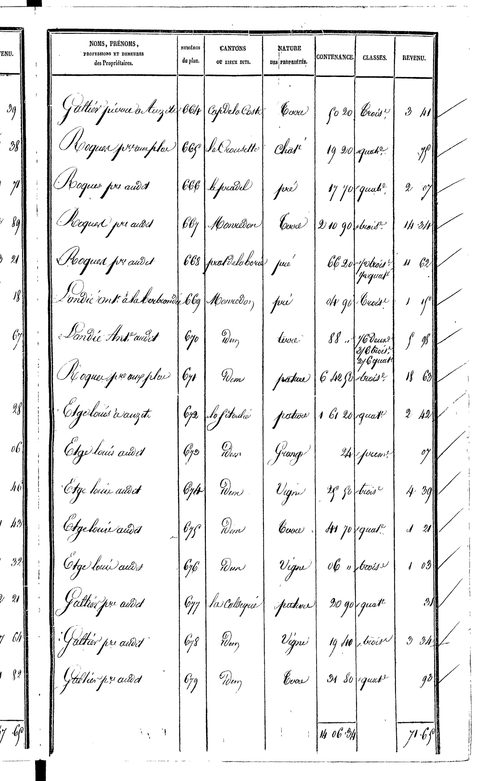 ENU.
39
38
71
89
21
18
67
28
06
46
43
32
21
64
82
NOMS, PRÉNOMS, PROFESSIONS ET DEMEURES des Propriétaires. NUMÉROS du plan. CANTONS OU LIEUX DITS. NATURE DES PROPRIÉTÉS. CONTENANCE. CLASSES. REVENU.
Galtier pierre à 664 Cap de la Coste terre 50 20 trois.e 3 41
Roques p.re aux plas 665 chat.é 19 20 quat.e 75
Roques p.re audet 666 le pradel pré 17 70 quat.e 2 07
Roques p.re audet 667 Monredon terre 2 10 90 trois.e 14 34
Roques p.re audet 668 pré 66 20 ½ trois.e ½ quat.e 11 62
Londié ant.e à la 669 Monredon pré 04 90 trois.e 1 15
Londié Ant.e audet 670 Idem terre 88 " 1/6 deux.e 3/6 trois.e 2/6 quat.e 5 98
Roques p.re aux plas 671 Idem pature 6 42 50 trois.e 18 63
Etge louis d'auzet 672 pature 1 61 20 quat.e 2 42
Etge louis audet 673 Idem Grange 24 prem.e 07
Etge louis audet 674 Idem Vigne 25 50 trois.e 4 39
Etge louis audet 675 Idem terre 41 70 quat.e 1 21
Etge louis audet 676 Idem Vigne 06 " trois.e 1 03
Galtier p.re audet 677 pature 20 90 quat.e 31
Galtier p.re audet 678 Idem Vigne 19 40 trois.e 3 34
Galtier p.re audet 679 Idem terre 31 80 quat.e 92
14 06 34 71 65